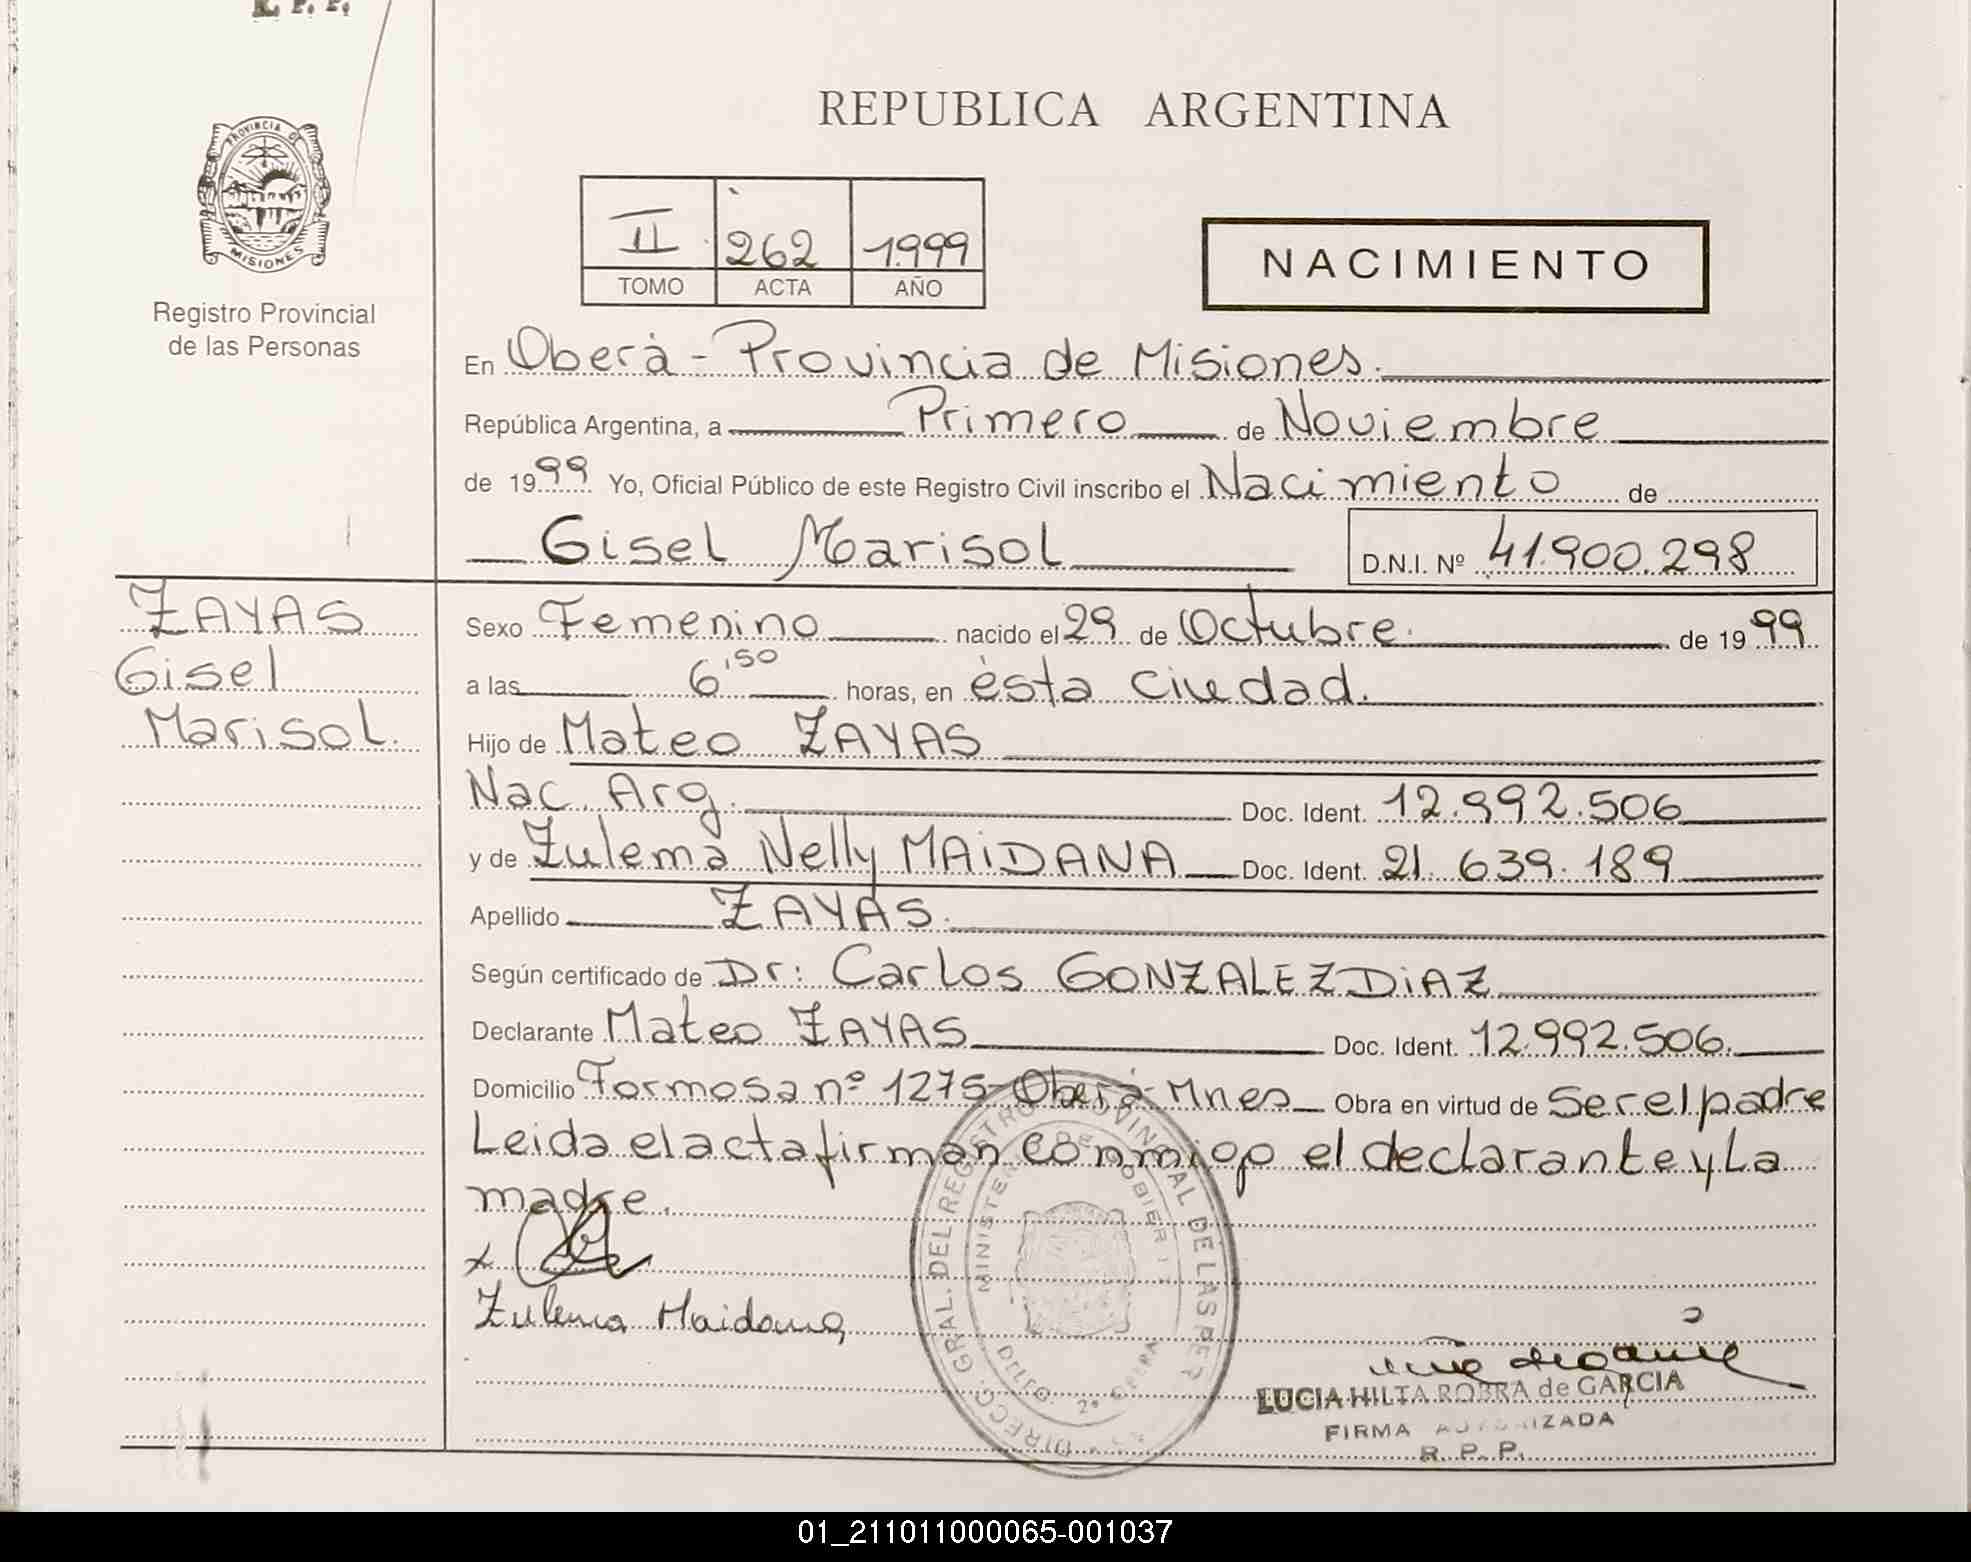 R. P. P.
PROVINCIA DE
MISIONES
Registro Provincial
de las Personas
REPUBLICA ARGENTINA
II 262 1999
TOMO ACTA AÑO
NACIMIENTO
En Oberà - Provincia de Misiones.
República Argentina, a Primero de Noviembre
de 1999 Yo, Oficial Público de este Registro Civil inscribo el Nacimiento de
Gisel Marisol D.N.I. Nº 41.900.298
ZAYAS
Gisel
Marisol.
Sexo Femenino nacido el 29 de Octubre. de 1999
a las 6,50 horas, en ésta ciudad.
Hijo de Mateo ZAYAS
Nac. Arg. Doc. Ident. 12.992.506
y de Zulema Nelly MAIDANA Doc. Ident. 21.639.189
Apellido ZAYAS.
Según certificado de Dr: Carlos GONZALEZ DIAZ
Declarante Mateo ZAYAS Doc. Ident. 12.992.506.
Domicilio Formosa nº 1275-Oberà-Mnes Obra en virtud de Ser el padre
Leida el acta firman conmigo el declarante y La
madre.
x
Zulema Maidana
DIRECC. GRAL. DEL REGISTRO PROVINCIAL DE LAS PER
LUCIA HILTA ROBRA de GARCIA
FIRMA AUTORIZADA
R. P. P.
01_211011000065-001037